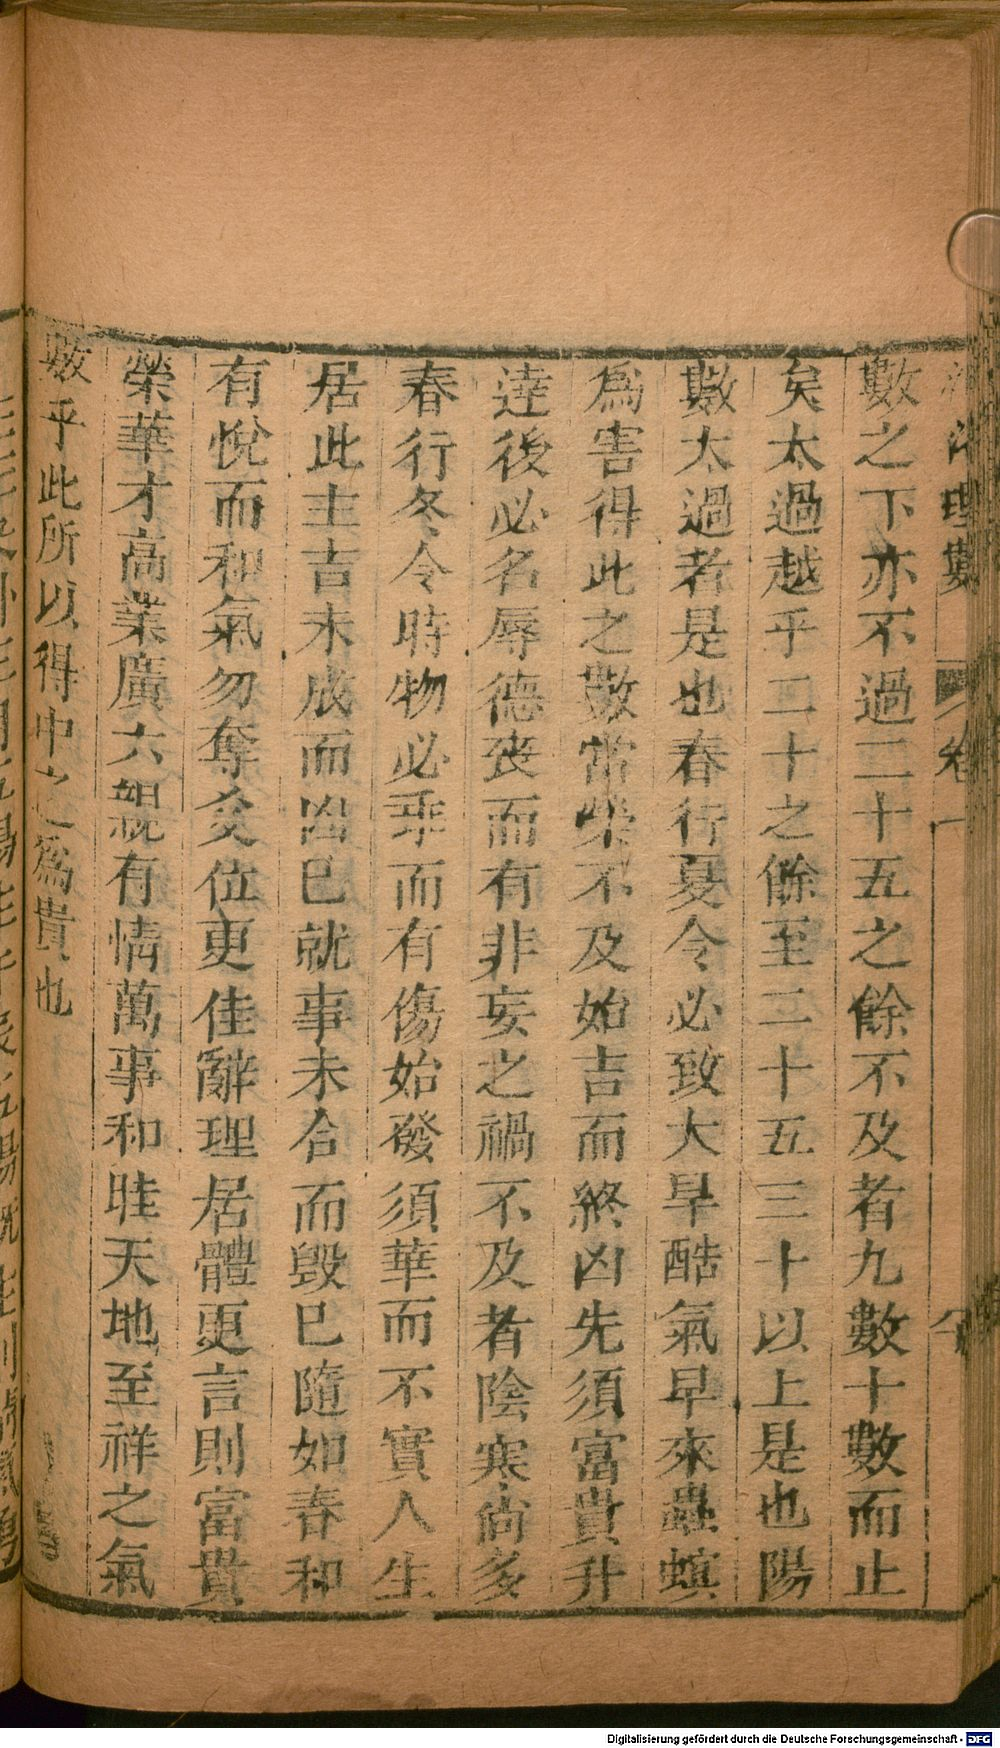 數之下亦不過二十五之餘不及者九數十數而止
矣太過越乎二十之餘至二十五三十以上是也陽
數太過者是也春行夏令必致大旱酷氣早來蟲螟
爲害得此之數當榮不及始吉而終凶先須富貴升
達後必名辱德丧而有非妄之禍不及者陰寒尚多
春行冬令時物必乖而有傷始發須華而不實人生
居此主吉未成而凶巳就事未合而毀巳隨如春和
有悅而和氣勿奪爻位更佳辭理居體更言則富貴
榮華才高業廣六親有情萬事和眭天地至祥之氣
數乎此所以得中之爲貴也
理數 卷一
Digitalisierung gefördert durch die Deutsche Forschungsgemeinschaft - DFG